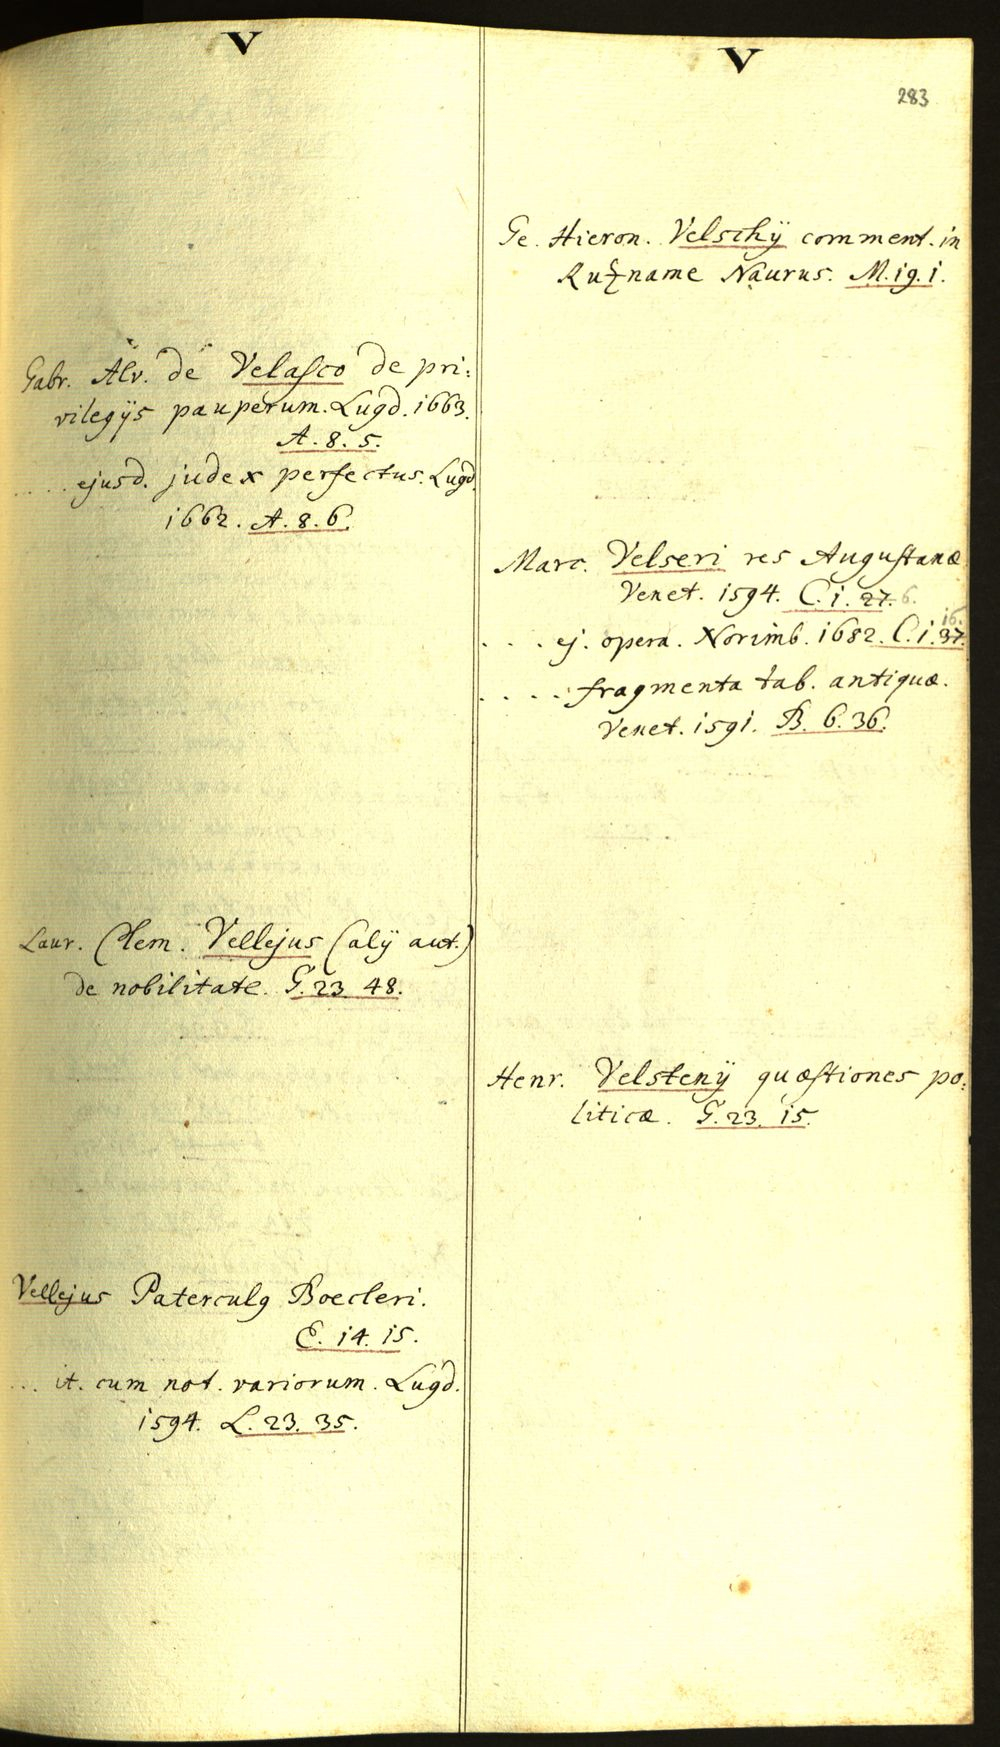 V
Gabr. Alv. de Velasco de pri:
vilegijs pauperum. Lugd. 1663.
A. 8. 5.
..... ejusd. judex perfectus. Lugd.
1662. A. 8. 6.
Laur. Clem. Vellejus (alij aut.)
de nobilitate. G. 23. 48.
Vellejus Paterculg Boecleri.
E. 14. 15.
... it. cum not. variorum. Lugd.
1594. L. 23. 35.
V
283
Ge. Hieron. Velschij comment. in
Ruzname Naurus. M. 19. 1.
Marc. Velseri res Augustanæ
Venet. 1594. C. 1. 27. 6.
.... ej. opera. Norimb. 1682. C. 1. 37. 16.
.... fragmenta tab. antiquæ.
Venet. 1591. B. 6. 36.
Henr. Velstenij quæstiones po:
liticæ. G. 23. 15.